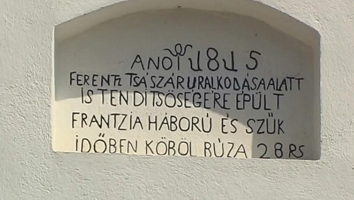 ANO 1815
FERENTZ TSÁSZÁR URALKODÁSA ALATT
ISTEN DITSŐSÉGÉRE ÉPÜLT
FRANTZIA HÁBORÚ ÉS SZŰK
IDŐBEN KÖBÖL BÚZA 28 RS